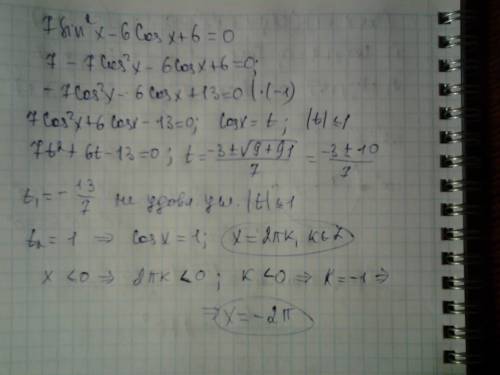 7 sin²x - 6 cos x + 6 = 0
7 - 7cos²x - 6cosx + 6 = 0;
- 7cos²x - 6 cosx + 13 = 0 | · (-1)
7cos²x + 6 cosx - 13 = 0; cosx = t; |t| ≤ 1
7t² + 6t - 13 = 0; t = (-3 ± √(9 + 91))/7 = (-3 ± 10)/7
t₁ = - 13/7 не удовл усл. |t| ≤ 1
t₂ = 1 ⇒ cosx = 1; x = 2πk, k ∈ Z
x < 0 ⇒ 2πk < 0; k < 0 ⇒ k = -1 ⇒
⇒ x = -2π